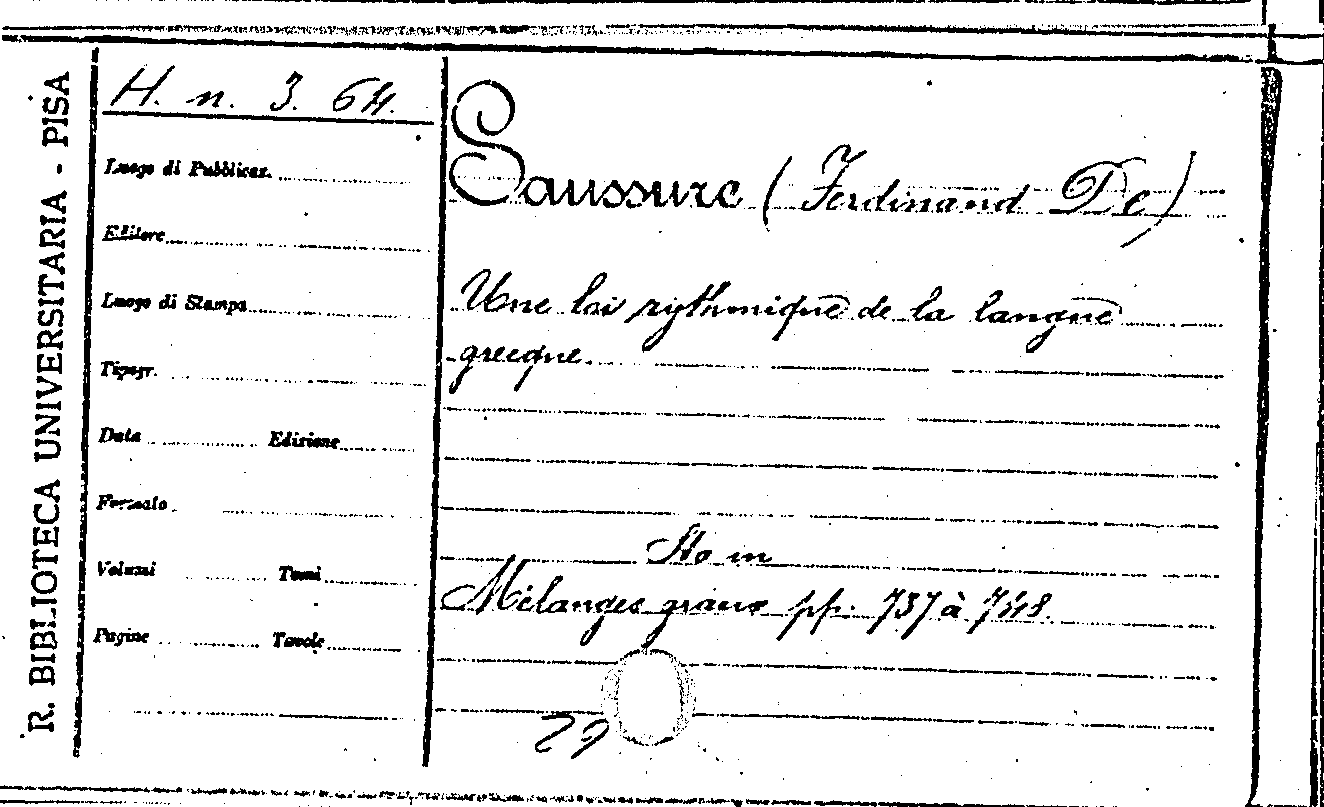 R. BIBLIOTECA UNIVERSITARIA - PISA
H. n. 3. 64.
Luogo di Pubblicaz.
Editore
Luogo di Stampa
Tipogr.
Data Edizione
Formato
Volumi Tomi
Pagine Tavole
Saussure (Ferdinand De)
Une loi rythmique de la langue
grecque.
Sta in
Mélanges graux pp. 737 à 748.
29